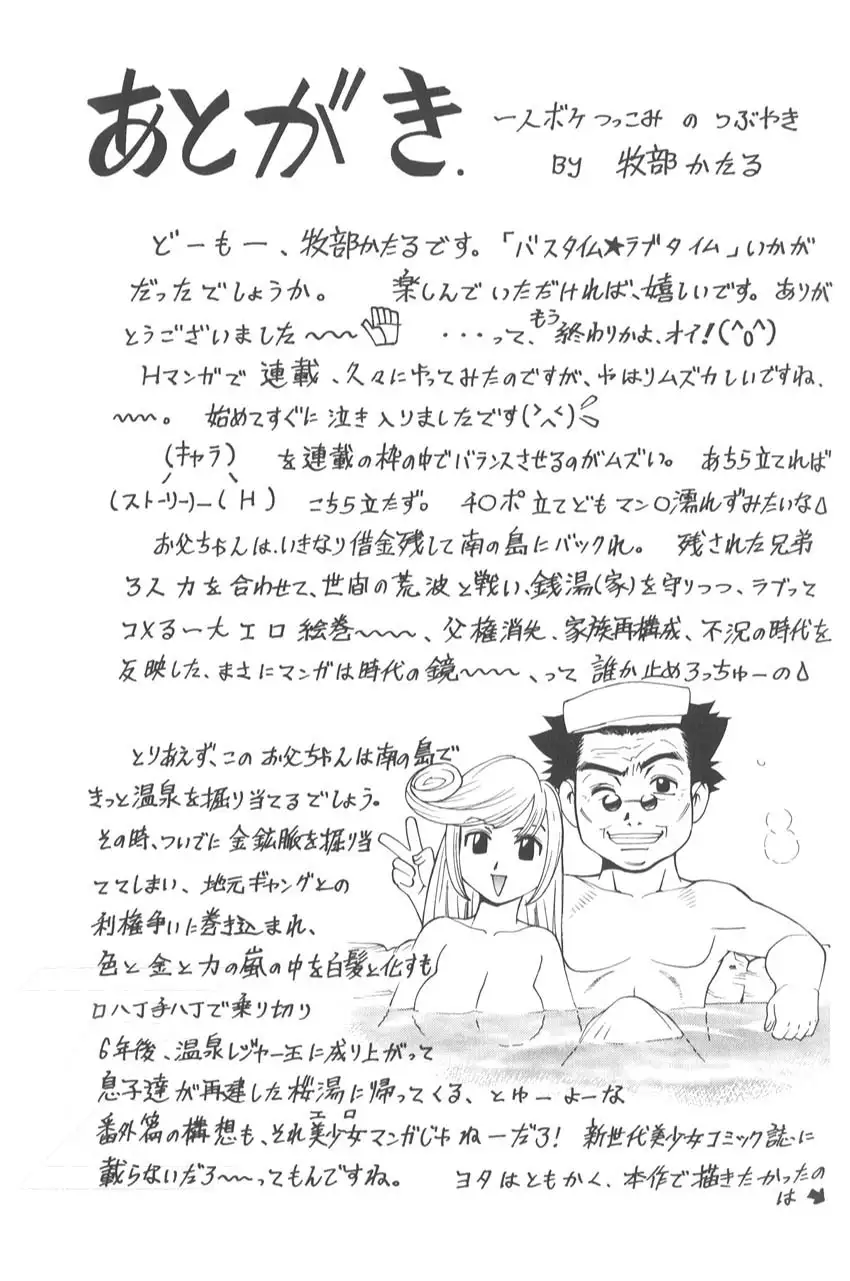 あとがき.
一人ボケつっこみ の つぶやき
BY 牧部かたる
どーもー、牧部かたるです。「バスタイム★ラブタイム」いかが
だったでしょうか。 楽しんでいただければ、嬉しいです。ありが
とうございました〜〜 ・・・って、もう終わりかよ、オイ!(^o^)
Hマンガで連載、久々にやってみたのですが、やはりムズカしいですね、
〜〜。 始めてすぐに泣き入りましたです(>へ<)
(キャラ) を連載の枠の中でバランスさせるのがムズい。 あちら立てれば
(ストーリー)ー(H) こちら立たず。 チ〇ポ立てどもマン〇濡れずみたいな△
お父ちゃんは、いきなり借金残して南の島にバックれ。 残された兄弟
3人力を合わせて、世間の荒波と戦い、銭湯(家)を守りつつ、ラブって
コメる一大エロ絵巻〜〜〜、父権消失、家族再構成、不況の時代を
反映した、まさにマンガは時代の鏡〜〜〜、って誰か止めろっちゅーの△
とりあえず、このお父ちゃんは南の島で
きっと温泉を掘り当てるでしょう。
その時、ついでに金鉱脈を掘り当
ててしまい、地元ギャングとの
利権争いに巻き込まれ、
色と金と力の嵐の中を白髪と化すも
口八丁手八丁で乗り切り
6年後、温泉レジャー王に成り上がって
息子達が再建した桜湯に帰ってくる、とゆーよーな
番外篇の構想も、それ美少女エロマンガじゃねーだろ! 新世代美少女コミック誌に
載らないだろ〜〜ってもんですね。 ヨタはともかく、本作で描きたかったの
は